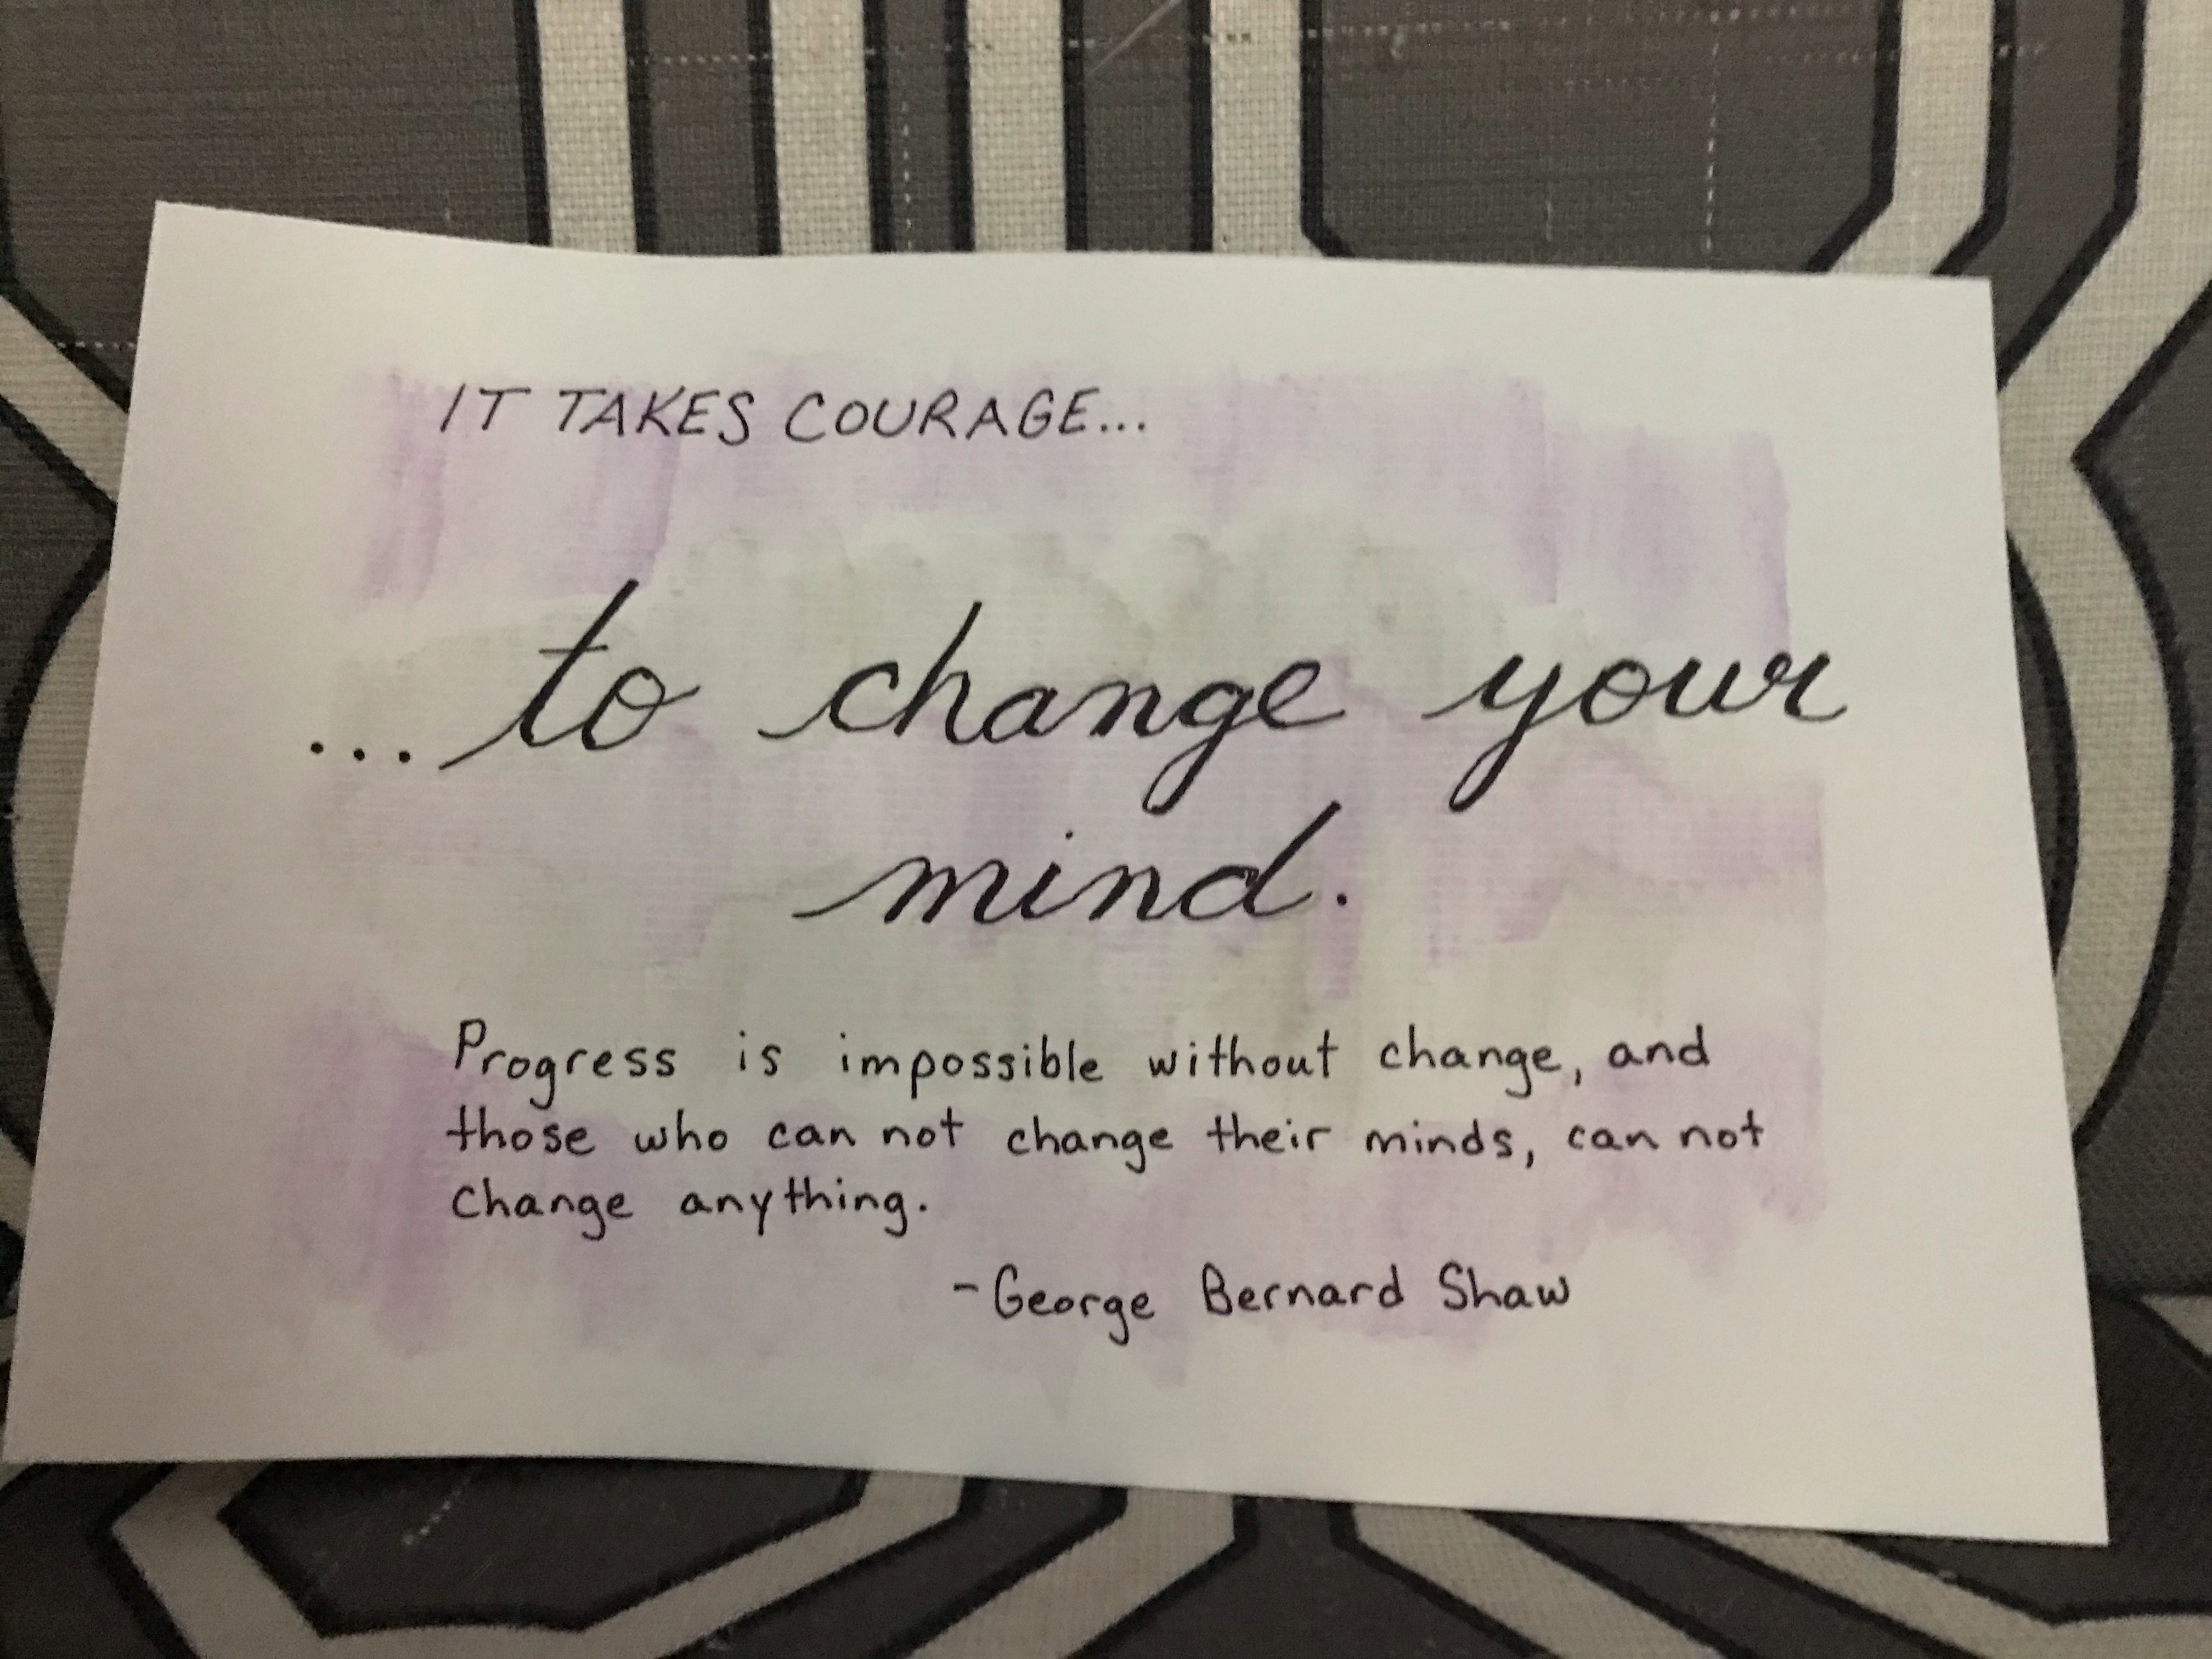 IT TAKES COURAGE...
...to change your
mind.
Progress is impossible without change, and
those who can not change their minds, can not
change anything.
-George Bernard Shaw